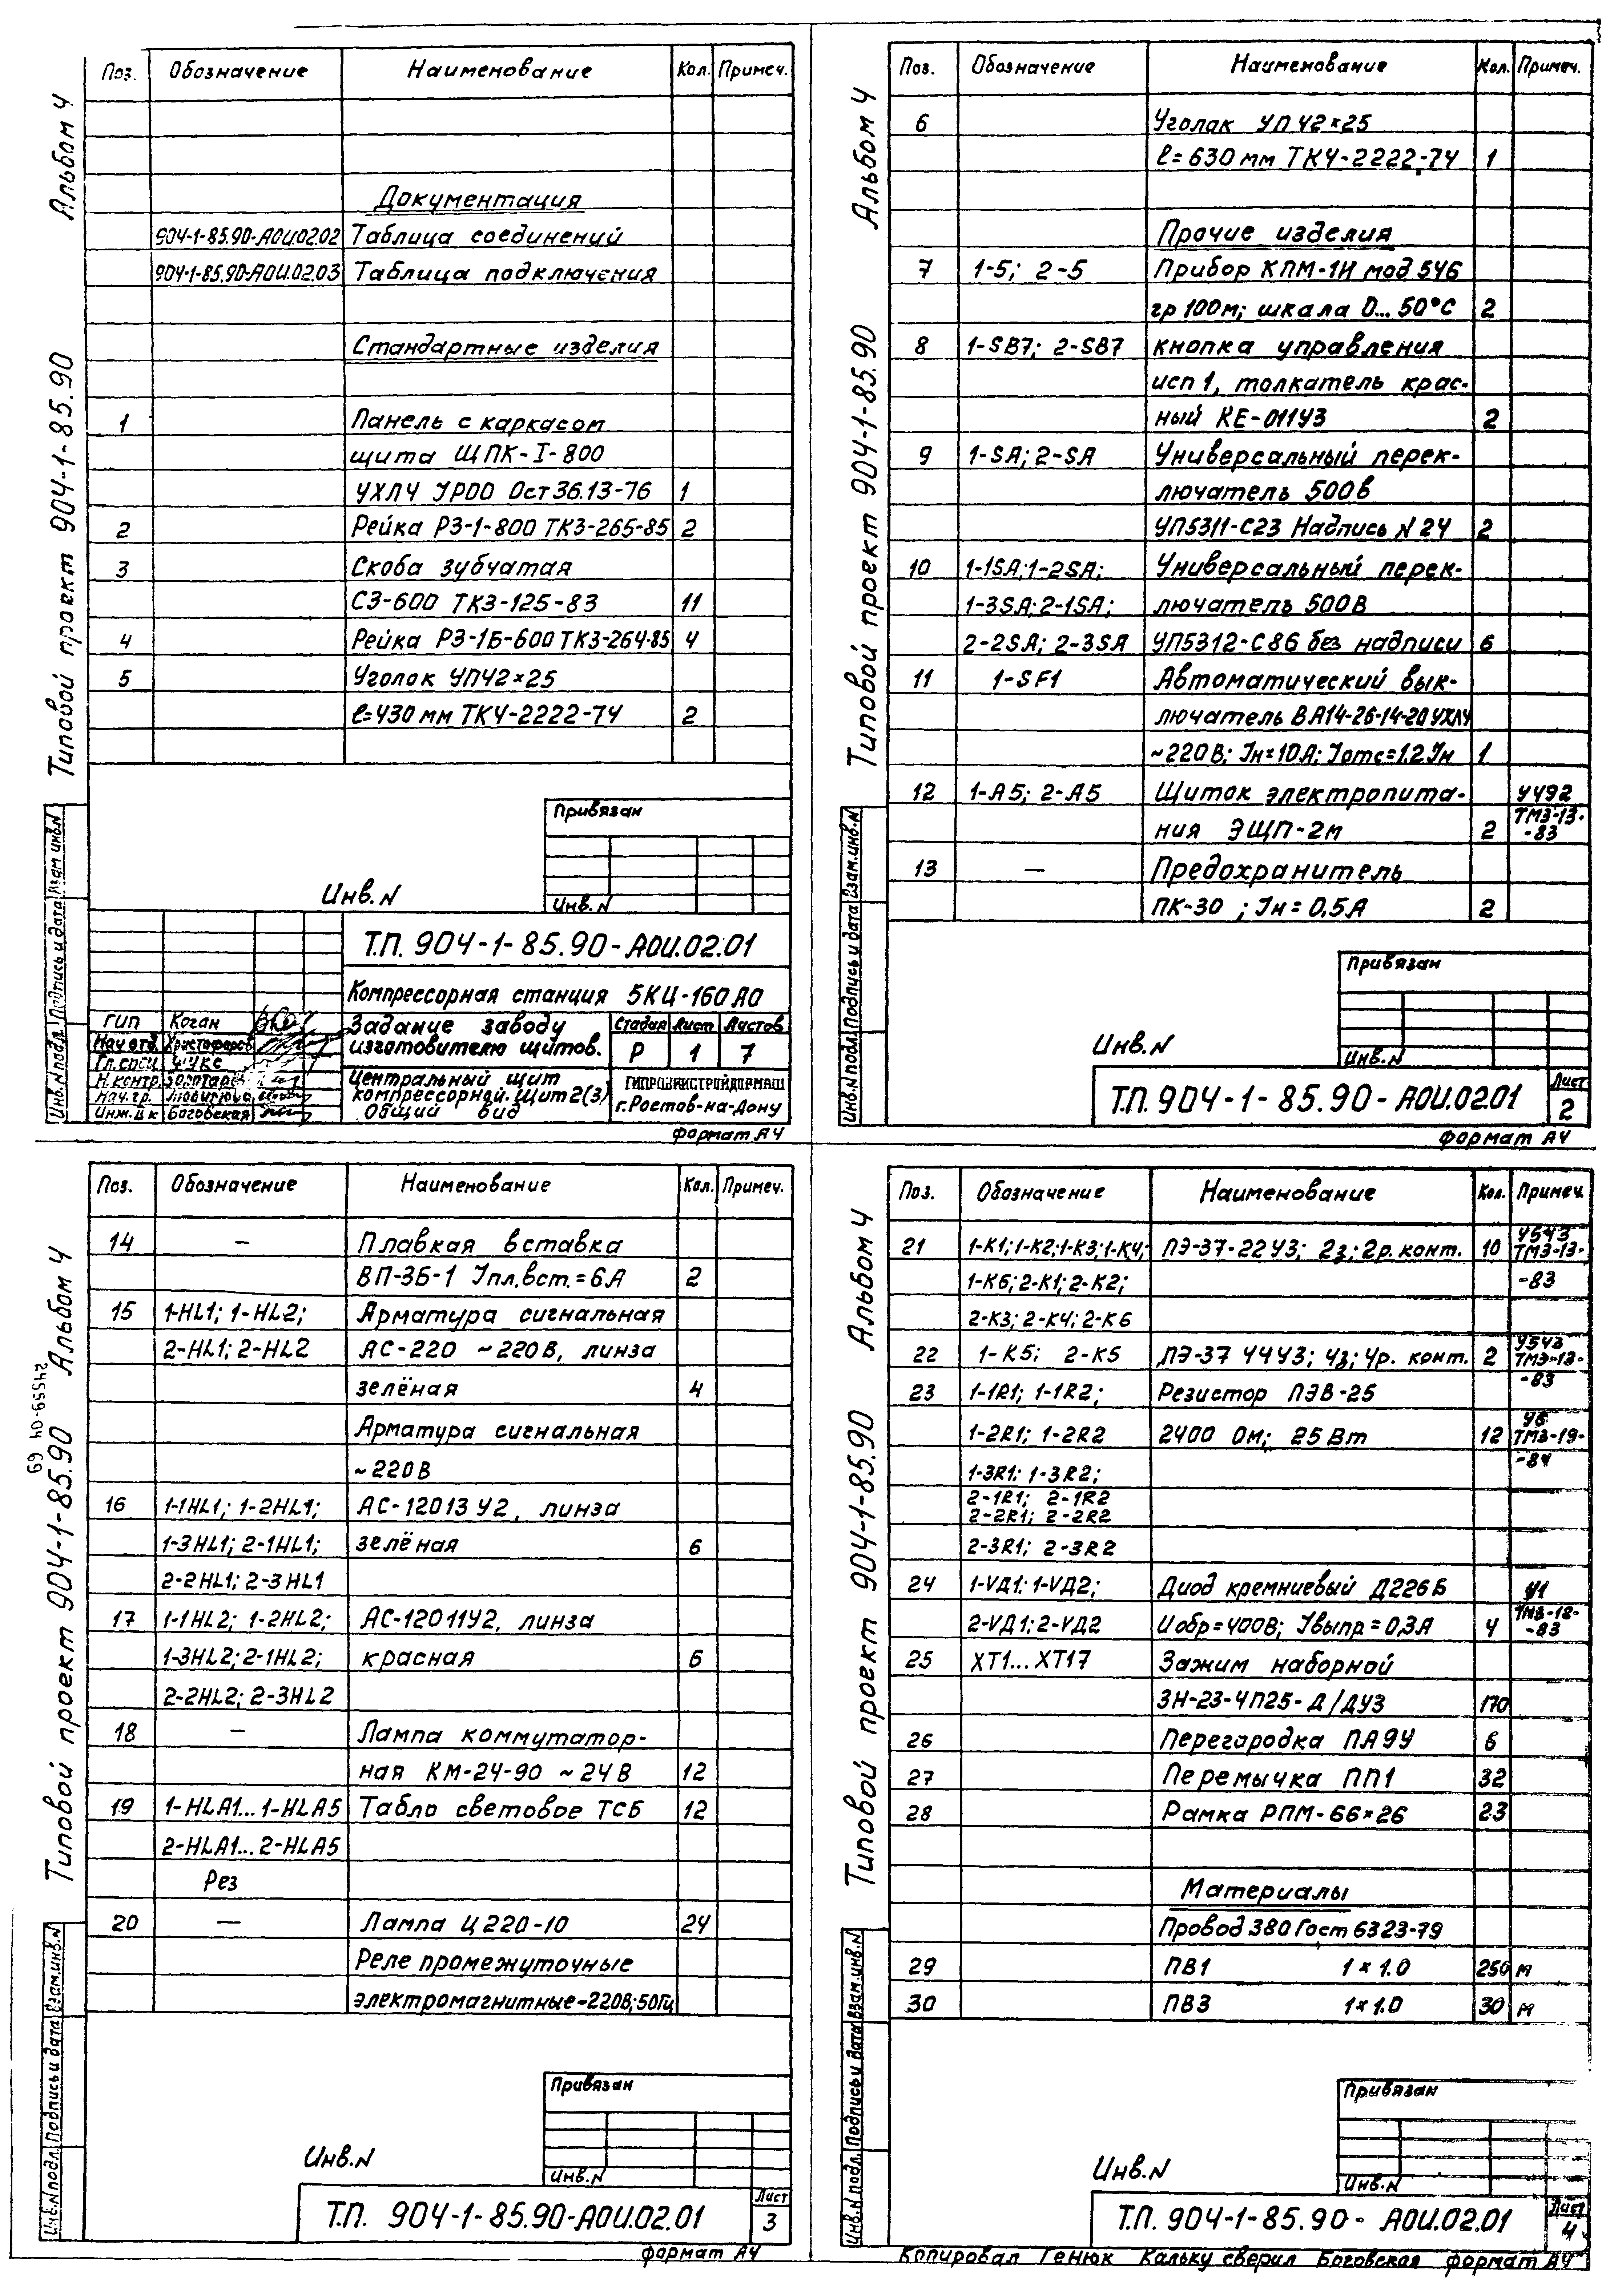 Альбом 4
Типовой проект 904-1-85.90
Поз. Обозначение Наименование Кол. Примеч.
Документация
904-1-85.90-АОИ.02.02 Таблица соединений
904-1-85.90-АОИ.02.03 Таблица подключения
Стандартные изделия
1 Панель с каркасом
щита ЩПК-I-800
УХЛ4 IР00 Ост 36.13-76 1
2 Рейка РЗ-1-800 ТК3-265-85 2
3 Скоба зубчатая
СЗ-600 ТК3-125-83 11
4 Рейка РЗ-1Б-600 ТК3-264-85 4
5 Уголок УП42×25
ℓ=430 мм ТК4-2222-74 2
Привязан
Инв.N
Инв.N
Инв.N подл. Подпись и дата Взам.инв.N
Т.П. 904-1-85.90-АОИ.02.01
Компрессорная станция 5КЦ-160АО
ГИП Коган
Нач.отд. Христофоров
Гл.спец. Фукс
Н.контр.
Нач.гр.
Инж.IIк Боговская
Задание заводу
изготовителю щитов.
Стадия Лист Листов
Р 1 7
Центральный щит
компрессорной. Щит 2(3)
Общий вид
г.Ростов-на-Дону
формат А4
Альбом 4
Типовой проект 904-1-85.90
Поз. Обозначение Наименование Кол. Примеч.
6 Уголак УП42×25
ℓ=630 мм ТК4-2222-74 1
Прочие изделия
7 1-5; 2-5 Прибор КПМ-1И мод 546
гр 100м; шкала 0... 50°С 2
8 1-SB7; 2-SB7 кнопка управления
исп 1, толкатель крас-
ный КЕ-011У3 2
9 1-SA; 2-SA Универсальный перек-
лючатель 500в
УП5311-С23 Надпись N 24 2
10 1-1SA; 1-2SA; Универсальный перек-
1-3SA; 2-1SA; лючатель 500В
2-2SA; 2-3SA УП5312-С86 без надписи 6
11 1-SF1 Автоматический вык-
лючатель ВА14-26-14-20УХЛ4
~220В; Iн=10А; Iотс=1.2Iн 1
12 1-А5; 2-А5 Щиток электропита- У492
ния ЭЩП-2м 2 ТМ3-13-
-83
13 — Предохранитель
ПК-30 ; Iн=0,5А 2
Привязан
Инв.N
Инв.N
Инв.N подл. Подпись и дата Взам.инв.N
Т.П. 904-1-85.90-АОИ.02.01
Лист
2
формат А4
24559-04 69
Альбом 4
Типовой проект 904-1-85.90
Поз. Обозначение Наименование Кол. Примеч.
14 — Плавкая вставка
ВП-3Б-1 Iпл.вст.=6А 2
15 1-HL1; 1-HL2; Арматура сигнальная
2-HL1; 2-HL2 АС-220 ~220В, линза
зелёная 4
Арматура сигнальная
~220В
16 1-1HL1; 1-2HL1; АС-12013У2, линза
1-3HL1; 2-1HL1; зелёная 6
2-2HL1; 2-3HL1
17 1-1HL2; 1-2HL2; АС-12011У2, линза
1-3HL2; 2-1HL2; красная 6
2-2HL2; 2-3HL2
18 — Лампа коммутатор-
ная КМ-24-90 ~24В 12
19 1-HLA1... 1-HLA5 Табло световое ТСБ 12
2-HLA1... 2-HLA5
Рез
20 — Лампа Ц220-10 24
Реле промежуточные
электромагнитные~220В;50Гц
Привязан
Инв.N
Инв.N
Инв.N подл. Подпись и дата Взам.инв.N
Т.П. 904-1-85.90-АОИ.02.01
Лист
3
формат А4
Альбом 4
Типовой проект 904-1-85.90
Поз. Обозначение Наименование Кол. Примеч.
21 1-К1; 1-К2; 1-К3; 1-К4; ПЭ-37-22У3; 2з; 2р.конт. 10 У543
ТМ3-13-
1-К6; 2-К1; 2-К2; -83
2-К3; 2-К4; 2-К6
22 1-К5; 2-К5 ПЭ-37 44У3; 4з; 4р. конт. 2 У543
ТМ3-13-
-83
23 1-1R1; 1-1R2; Резистор ПЭВ-25
1-2R1; 1-2R2 2400 Ом; 25Вт 12 У6
ТМ3-19-
1-3R1; 1-3R2; -84
2-1R1; 2-1R2
2-2R1; 2-2R2
2-3R1; 2-3R2
24 1-VД1; 1-VД2; Диод кремниевый Д226Б У1
2-VД1; 2-VД2 Uобр=400В; Iвыпр=0,3А 4 ТМ3-18-
-83
25 ХТ1...ХТ17 Зажим наборной
ЗН-23-4П25-Д/ДУ3 170
26 Перегородка ПА9У 6
27 Перемычка ПП1 32
28 Рамка РПМ-66×26 23
Материалы
Провод 380 Гост 6323-79
29 ПВ1 1×1.0 250 м
30 ПВ3 1×1.0 30 м
Привязан
Инв.N
Инв.N
Инв.N подл. Подпись и дата Взам.инв.N
Т.П. 904-1-85.90-АОИ.02.01
Лист
4
Копировал Генюк Кальку сверил Боговская формат А4